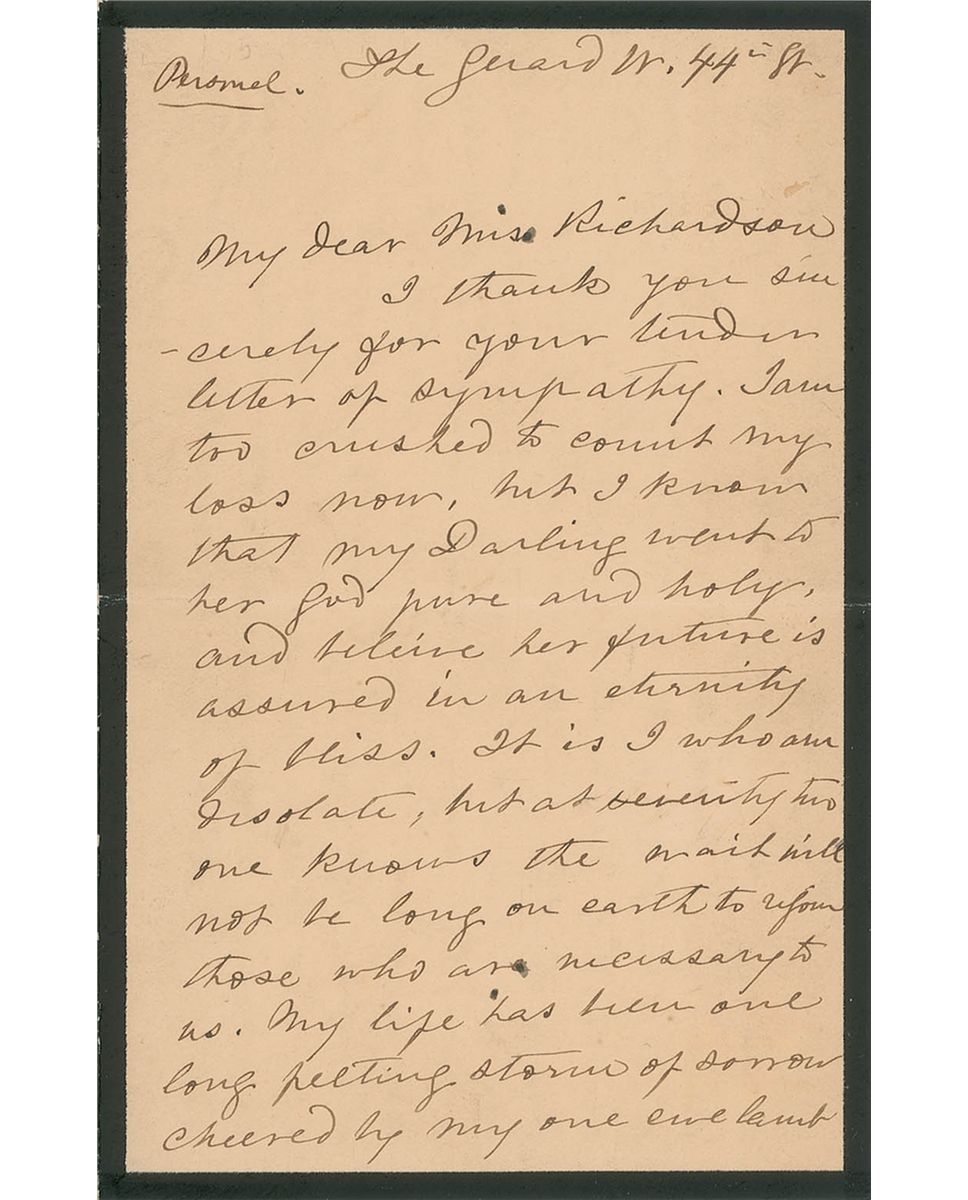 Personel. The Gerard W. 44th St.
My dear Miss Richardson
I thank you sin
-cerely for your tender
letter of sympathy. I am
too crushed to count my
loss now, but I know
that my Darling went to
her God pure and holy,
and beleive her future is
assured in an eternity
of bliss. It is I who am
desolate, but at seventy two
one knows the wait will
not be long on earth to rejoin
those who are necessary to
us. My life has been one
long pelting storm of sorrow
cheered by my one ewe lamb